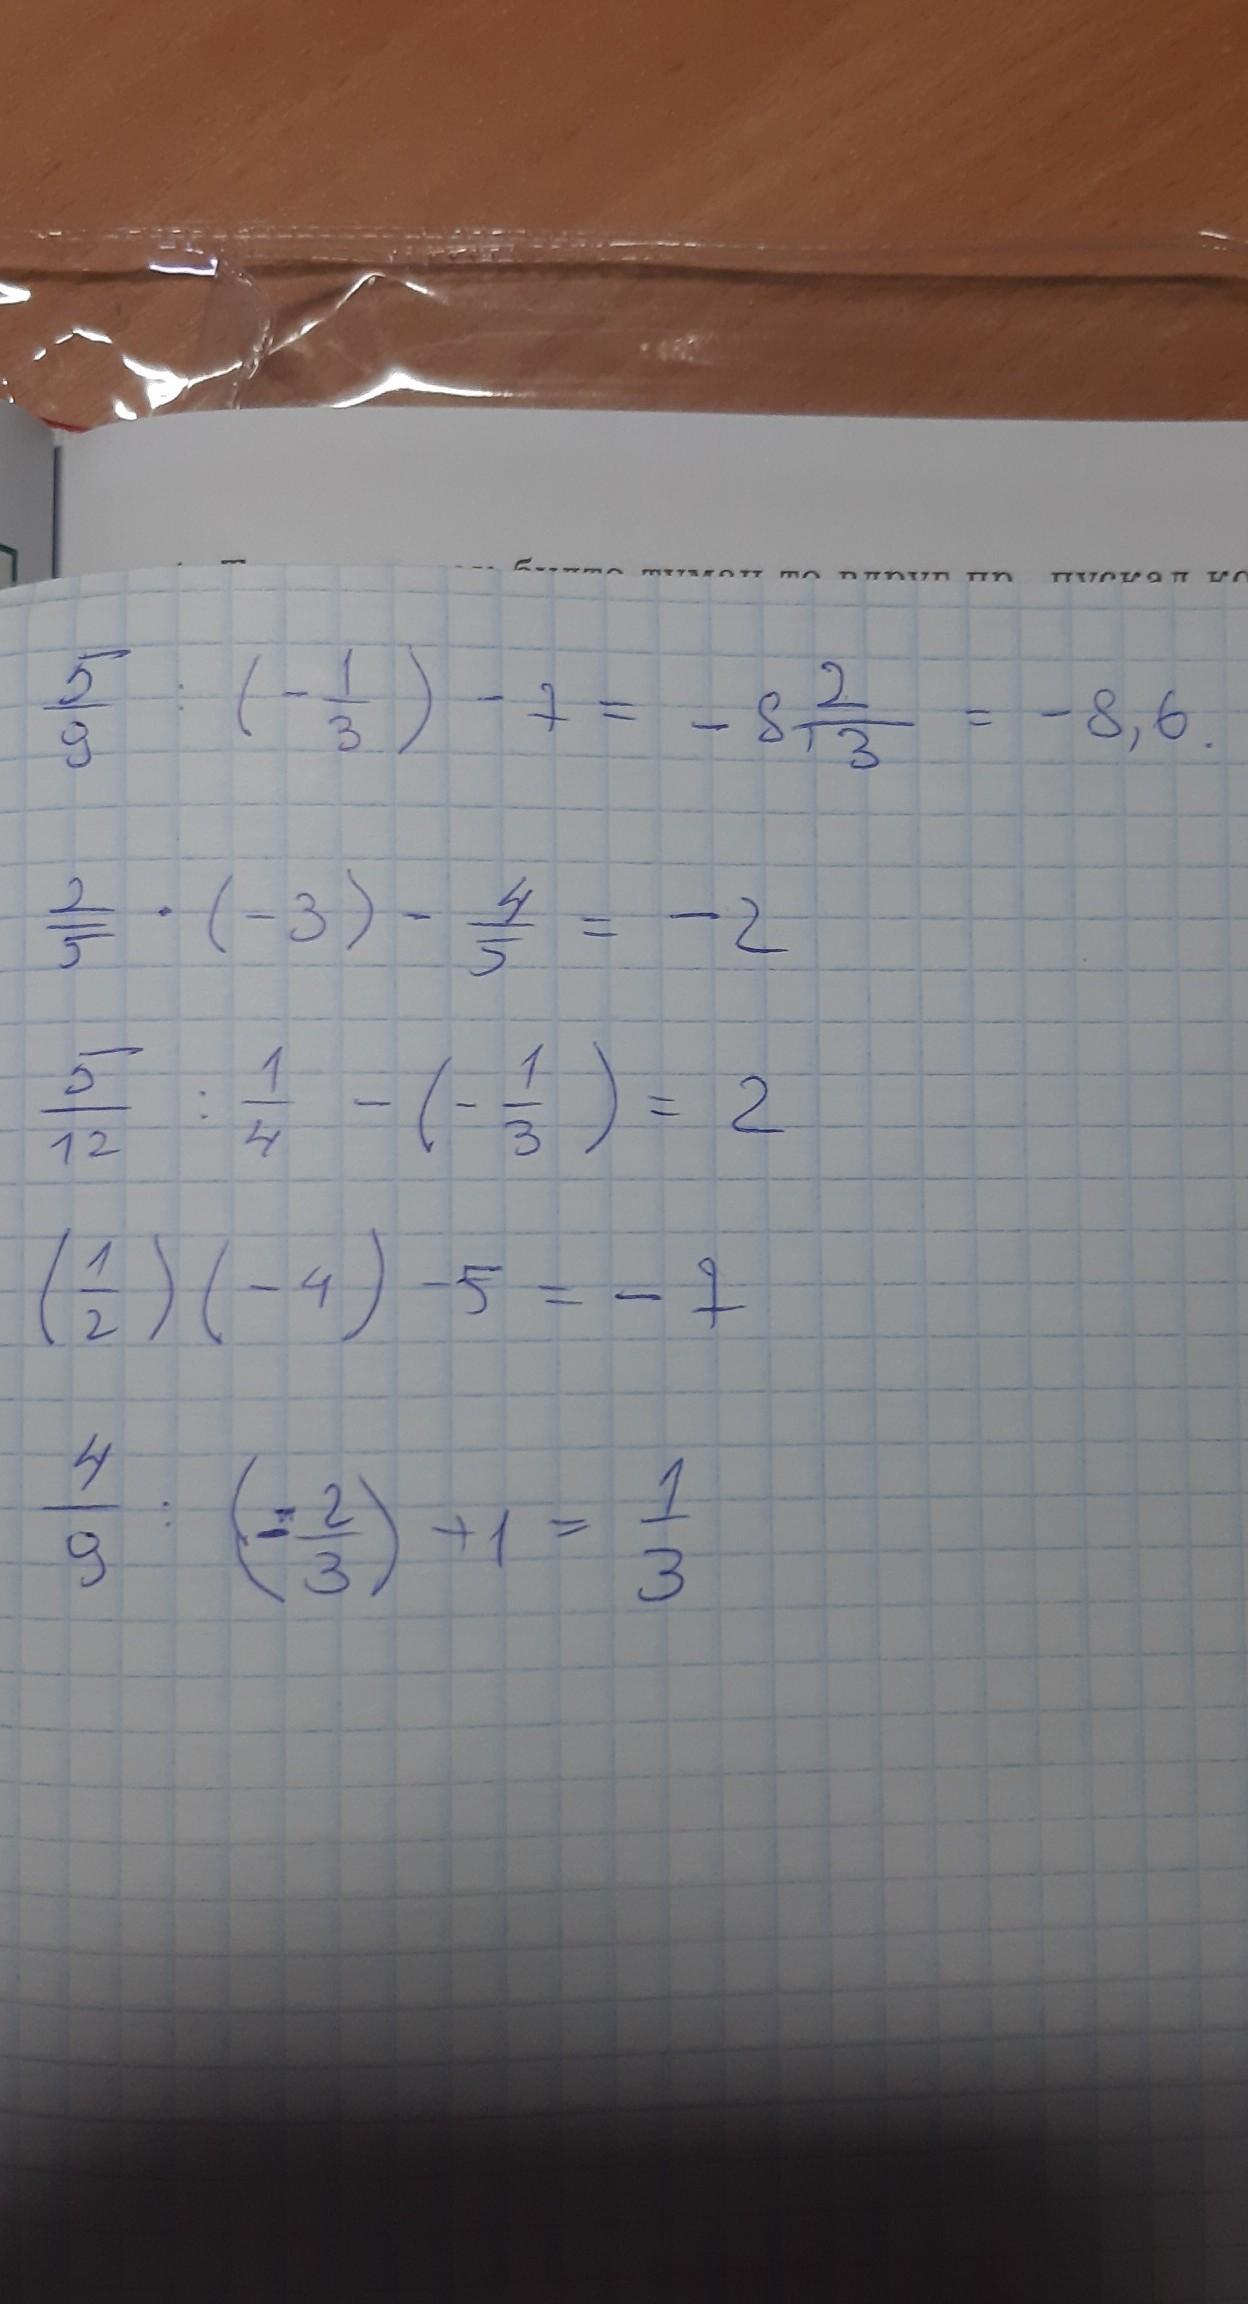 будто туман то вдруг пр пускал
5/9 : (-1/3) - 7 = -8 2/3 = -8,6.
2/5 · (-3) - 4/5 = -2
5/12 : 1/4 - (-1/3) = 2
(1/2)(-4) - 5 = -7
4/9 : (-2/3) + 1 = 1/3